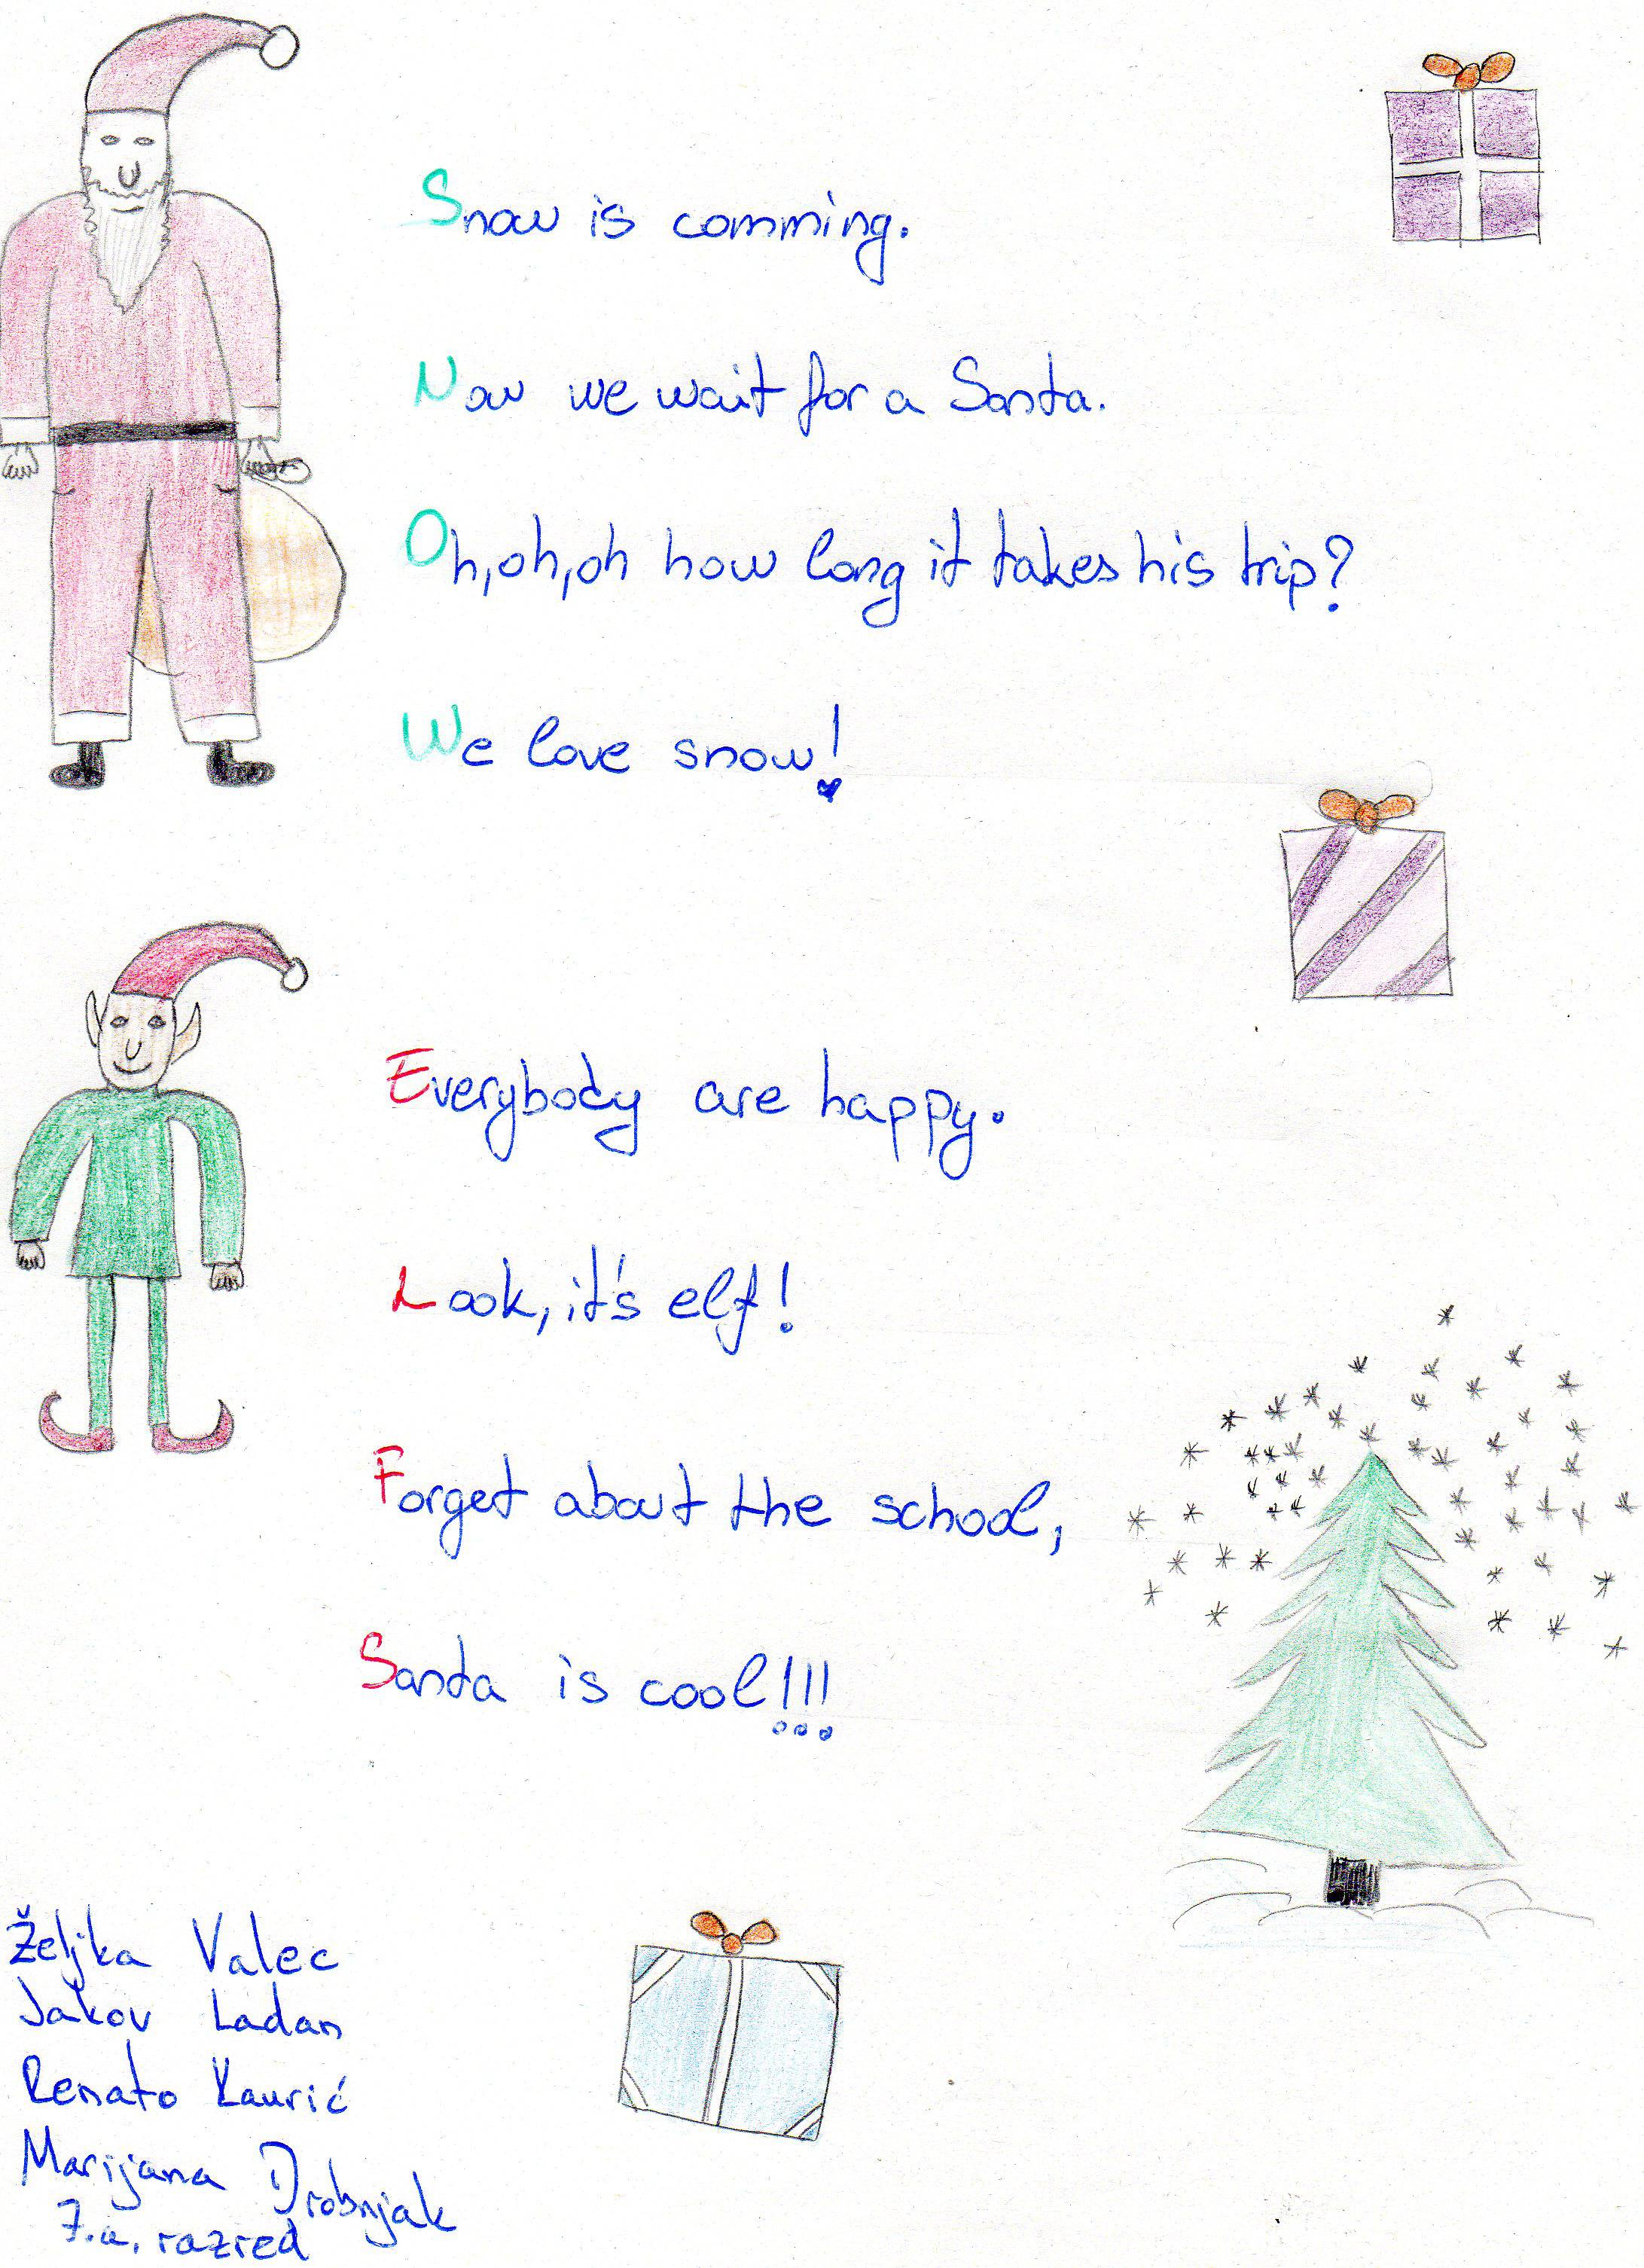 Snow is comming.
Now we wait for a Santa.
Oh,oh,oh how long it takes his trip?
We love snow!
Everybody are happy.
Look, it's elf!
Forget about the school,
Santa is cool!!!
Željka Valec
Jakov Ladan
Renato Kaurić
Marijana Drobnjak
7.a. razred